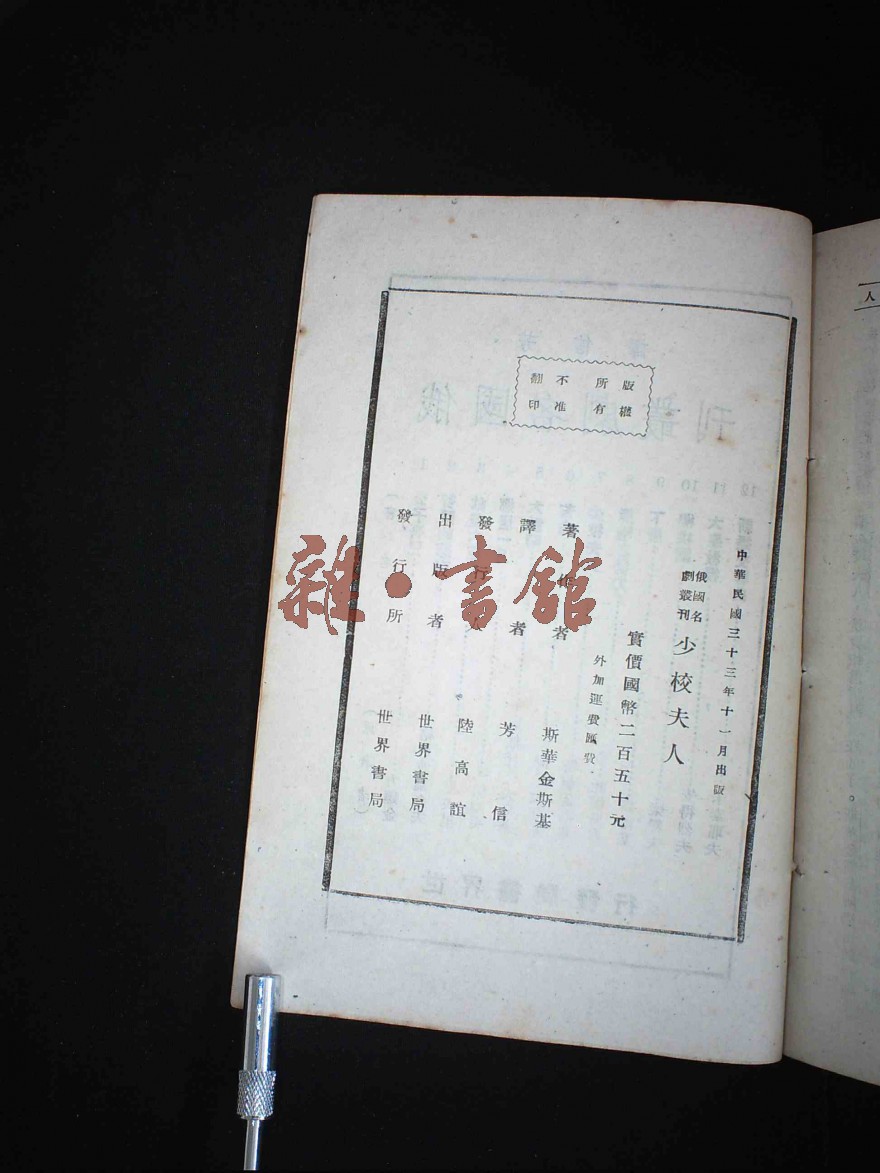 版權所有
不准翻印
中華民國三十三年十一月出版
俄國名劇叢刊
少校夫人
實價國幣二百五十元
外加運費匯費
著作者 斯華金斯基
譯者 芳信
發行人 陸高誼
出版者 世界書局
發行所 世界書局
雜·書館
人